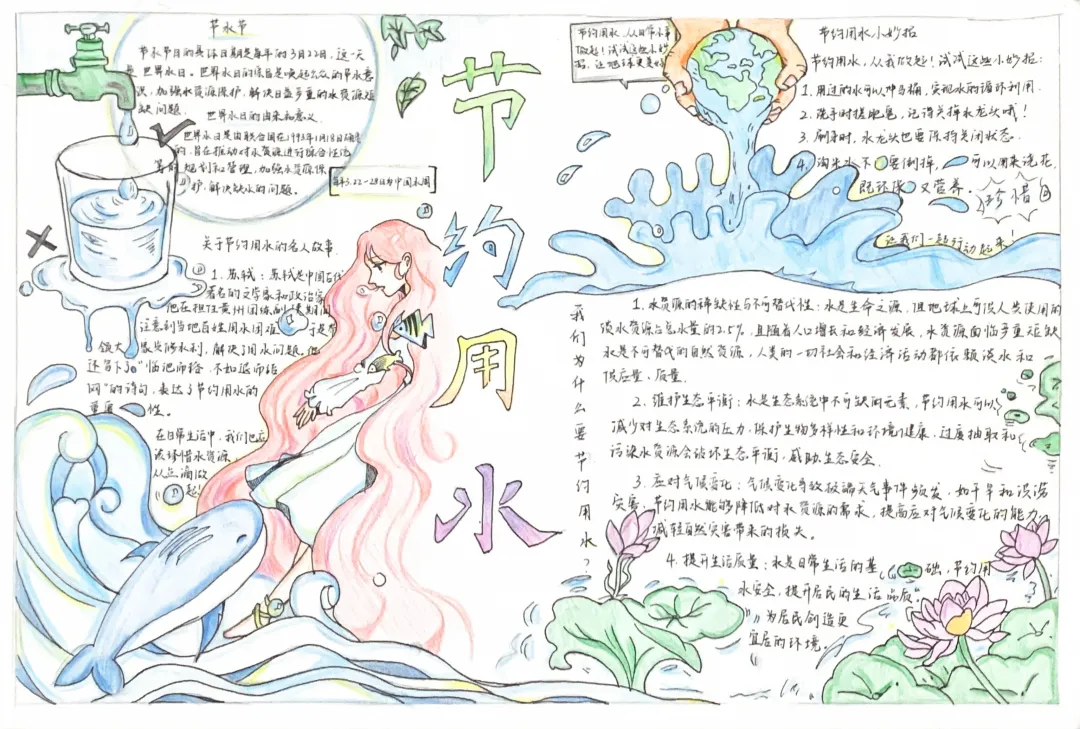 节水节
节水节日的具体日期是每年的3月22日,这一天
是世界水日。世界水日的综旨是唤起公众的节水意
识,加强水资源保护,解决日益多重的水资源短
缺问题。
世界水日的由来和意义
世界水日是由联合国在1993年1月18日确定
的,旨在推动对水资源进行综合性统
筹的规划和管理,加强水资源保
护,解决缺水的问题。
每年3.22-28日为中国水周
关于节约用水的名人故事.
1. 苏轼:苏轼是中国古代
著名的文学家和政治家
他在担任黄州团练副使期间
注意到当地百姓用水困难 于是带
领大 家兴修水利,解决了用水问题。他
还写下了“临池而
不如退而结
网”的诗句,表达了节约用水的
重要 性。
在日常生活中,我们也应
该珍惜水资源
从点滴做
起!
节约用水
节约用水,从日常小事
做起!试试这些小妙
招,让地球更美好
节约用水小妙招
节约用水,从我做起!试试这些小妙招:
1. 用过的水可以冲马桶,实现水的循环利用.
2. 洗手时搓肥皂,记得关掉水龙头哦!
3. 刷牙时,水龙头也要保持关闭状态.
4. 淘米水 不 要倒掉, 可以用来浇花,
既环保 又营养.
珍惜
让我们一起行动起来!
我们为什么要节约用水?
1. 水资源的稀缺性与不可替代性:水是生命之源,但地球上可供人类使用的
淡水资源占总水量的2.5%,且随着人口增长和经济发展,水资源面临多重短缺
水是不可替代的自然资源,人类的一切社会和经济活动都依赖淡水和
供应量、质量.
2. 维护生态平衡:水是生态系统中不可缺的元素,节约用水可以
减少对生态系统的压力,保护生物多样性和环境健康,过度抽取和
污染水资源会破坏生态平衡,威胁生态安全.
3. 应对气候变化:气候变化导致极端天气事件频发,如干旱和洪涝
灾害,节约用水能够降低对水资源的需求,提高应对气候变化的能力,
减轻自然灾害带来的损失。
4. 提升生活质量:水是日常生活的基 础,节约用
水安全,提升居民的生活品质
为居民创造更
宜居的环境.